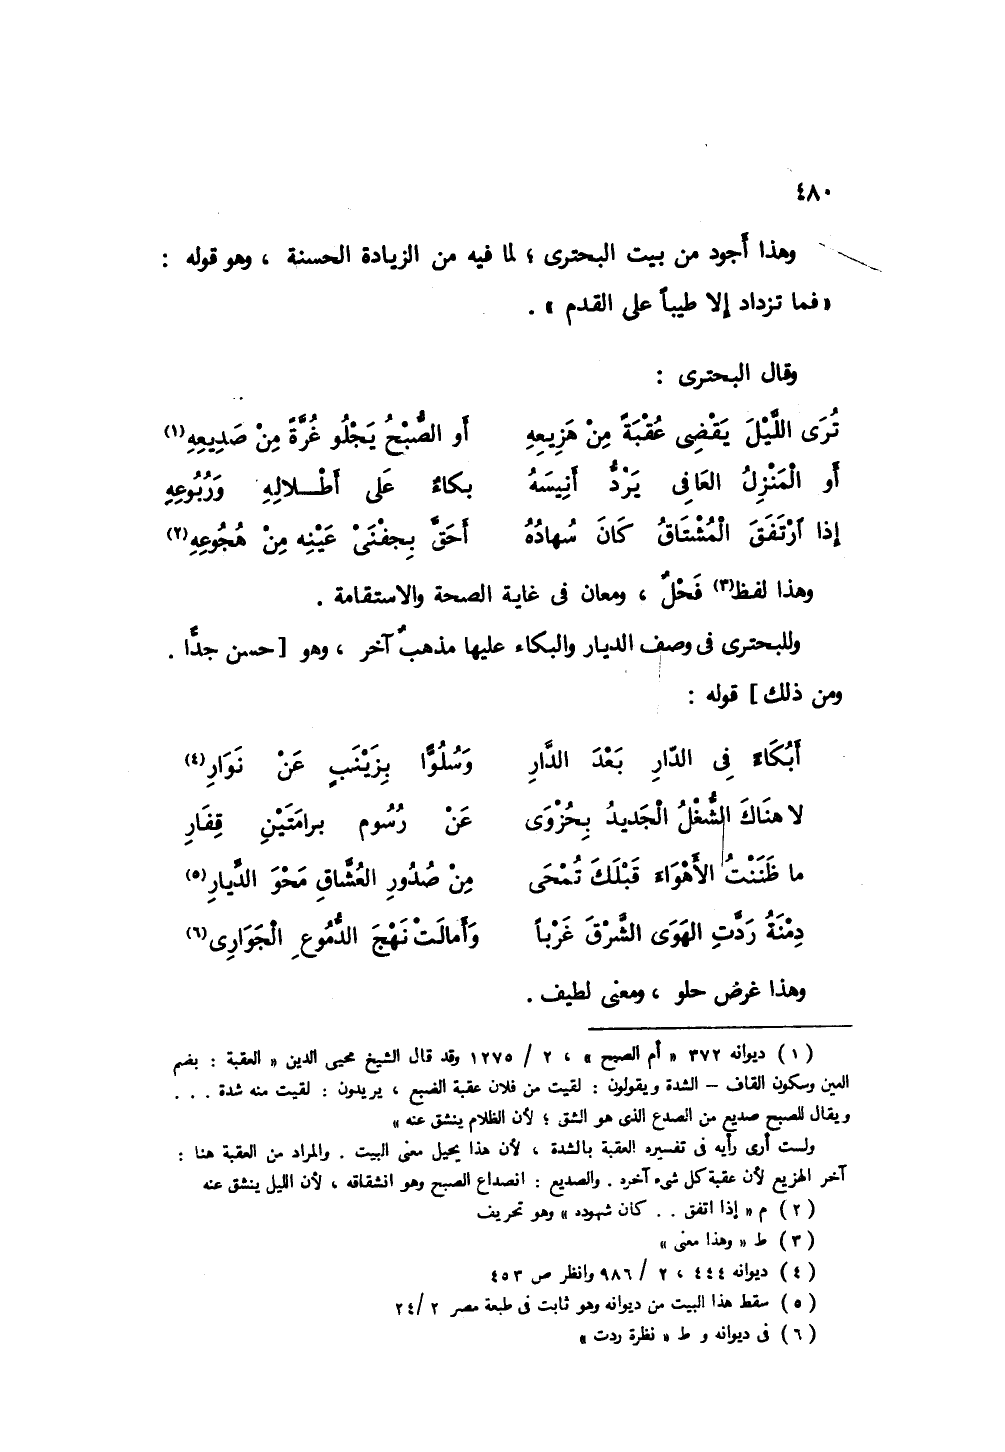 ٤٨٠
وهذا أجود من بيت البحترى ؛ لما فيه من الزيادة الحسنة ، وهو قوله :
« فما تزداد إلا طيباً على القدم » .
وقال البحترى :
تُرَى اللَّيْلَ يَقْضِى عُقْبَةً مِنْ هَزِيعِهِ أَو الصُّبْحُ يَجْلُو غُرَّةً مِنْ صَدِيعِهِ(١)
أَو الْمَنْزِلُ العَافِى يَرُدُّ أَنِيسَهُ بكاءٌ عَلَى أَطْــلالِهِ وَرُبُوعِهِ
إذا ارْتَفَقَ الْمُشْتَاقُ كَانَ سُهادُهُ أَحَقَّ بِجفْنَىْ عَيْنِه مِنْ هُجُوعِهِ(٢)
وهذا لفظ(٣) فَحْلٌ ، ومعان فى غاية الصحة والاستقامة .
وللبحترى فى وصف الديار والبكاء عليها مذهبٌ آخر ، وهو [ حسن جدًّا .
ومن ذلك ] قوله :
أَبُكَاءً فِى الدَّارِ بَعْدَ الدَّارِ وَسُلُوًّا بِزَيْنَبٍ عَنْ نَوَارِ(٤)
لا هنَاكَ الشُّغْلُ الْجَديدُ بِحُزْوَى عَنْ رُسُوم برامَتَيْنِ قِفَارِ
ما ظَنَنْتُ الأَهْوَاءَ قَبْلَكَ تُمْحَى مِنْ صُدُورِ العُشَّاقِ مَحْوَ الدِّيارِ(٥)
دِمْنَةٌ رَدَّتِ الهَوَى الشَّرْقَ غَرْباً وَأَمالَتْ نَهْجَ الدُّمُوعِ الْجَوَارِى(٦)
وهذا غرض حلو ، ومعنى لطيف .
( ١ ) ديوانه ٣٧٢ « أم الصبح » ، ٢ / ١٢٧٥ وقد قال الشيخ محيى الدين « العقبة : بضم
العين وسكون القاف – الشدة ويقولون : لقيت من فلان عقبة الضبع ، يريدون : لقيت منه شدة . . .
ويقال للصبح صديع من الصدع الذى هو الشق ؛ لأن الظلام ينشق عنه »
ولست أرى رأيه فى تفسيره العقبة بالشدة ، لأن هذا يحيل معنى البيت . والمراد من العقبة هنا :
آخر الهزيع لأن عقبة كل شىء آخره . والصديع : انصداع الصبح وهو انشقاقه ، لأن الليل ينشق عنه
( ٢ ) م « إذا اتفق . . كان شهوده » وهو تحريف
( ٣ ) ط « وهذا معنى »
( ٤ ) ديوانه ٤٤٤ ، ٢ / ٩٨٦ وانظر ص ٤٥٣
( ٥ ) سقط هذا البيت من ديوانه وهو ثابت فى طبعة مصر ٢ /٢٤
( ٦ ) فى ديوانه و ط « نظرة ردت »